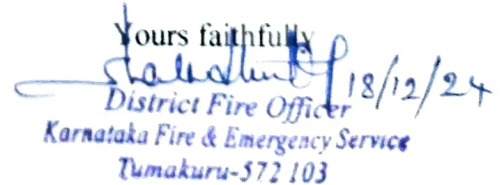 Yours faithfully
18/12/24
District Fire Officer
Karnataka Fire & Emergency Service
Tumakuru-572 103